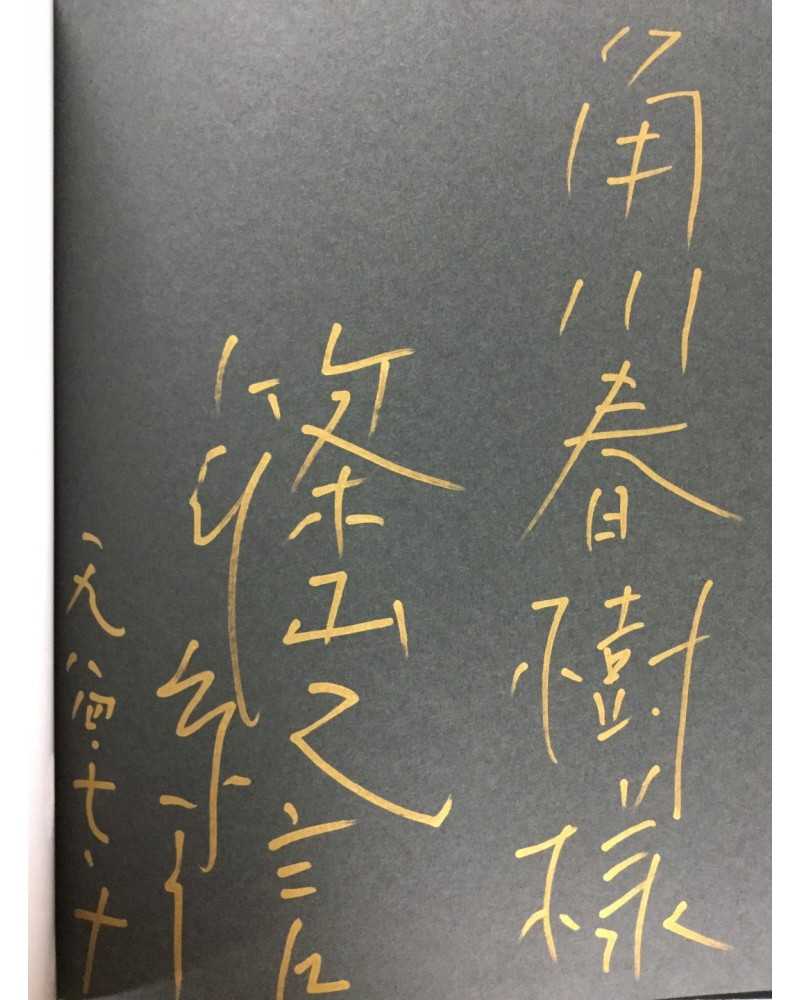 角川春樹様
篠山紀信
一九八四・七・十